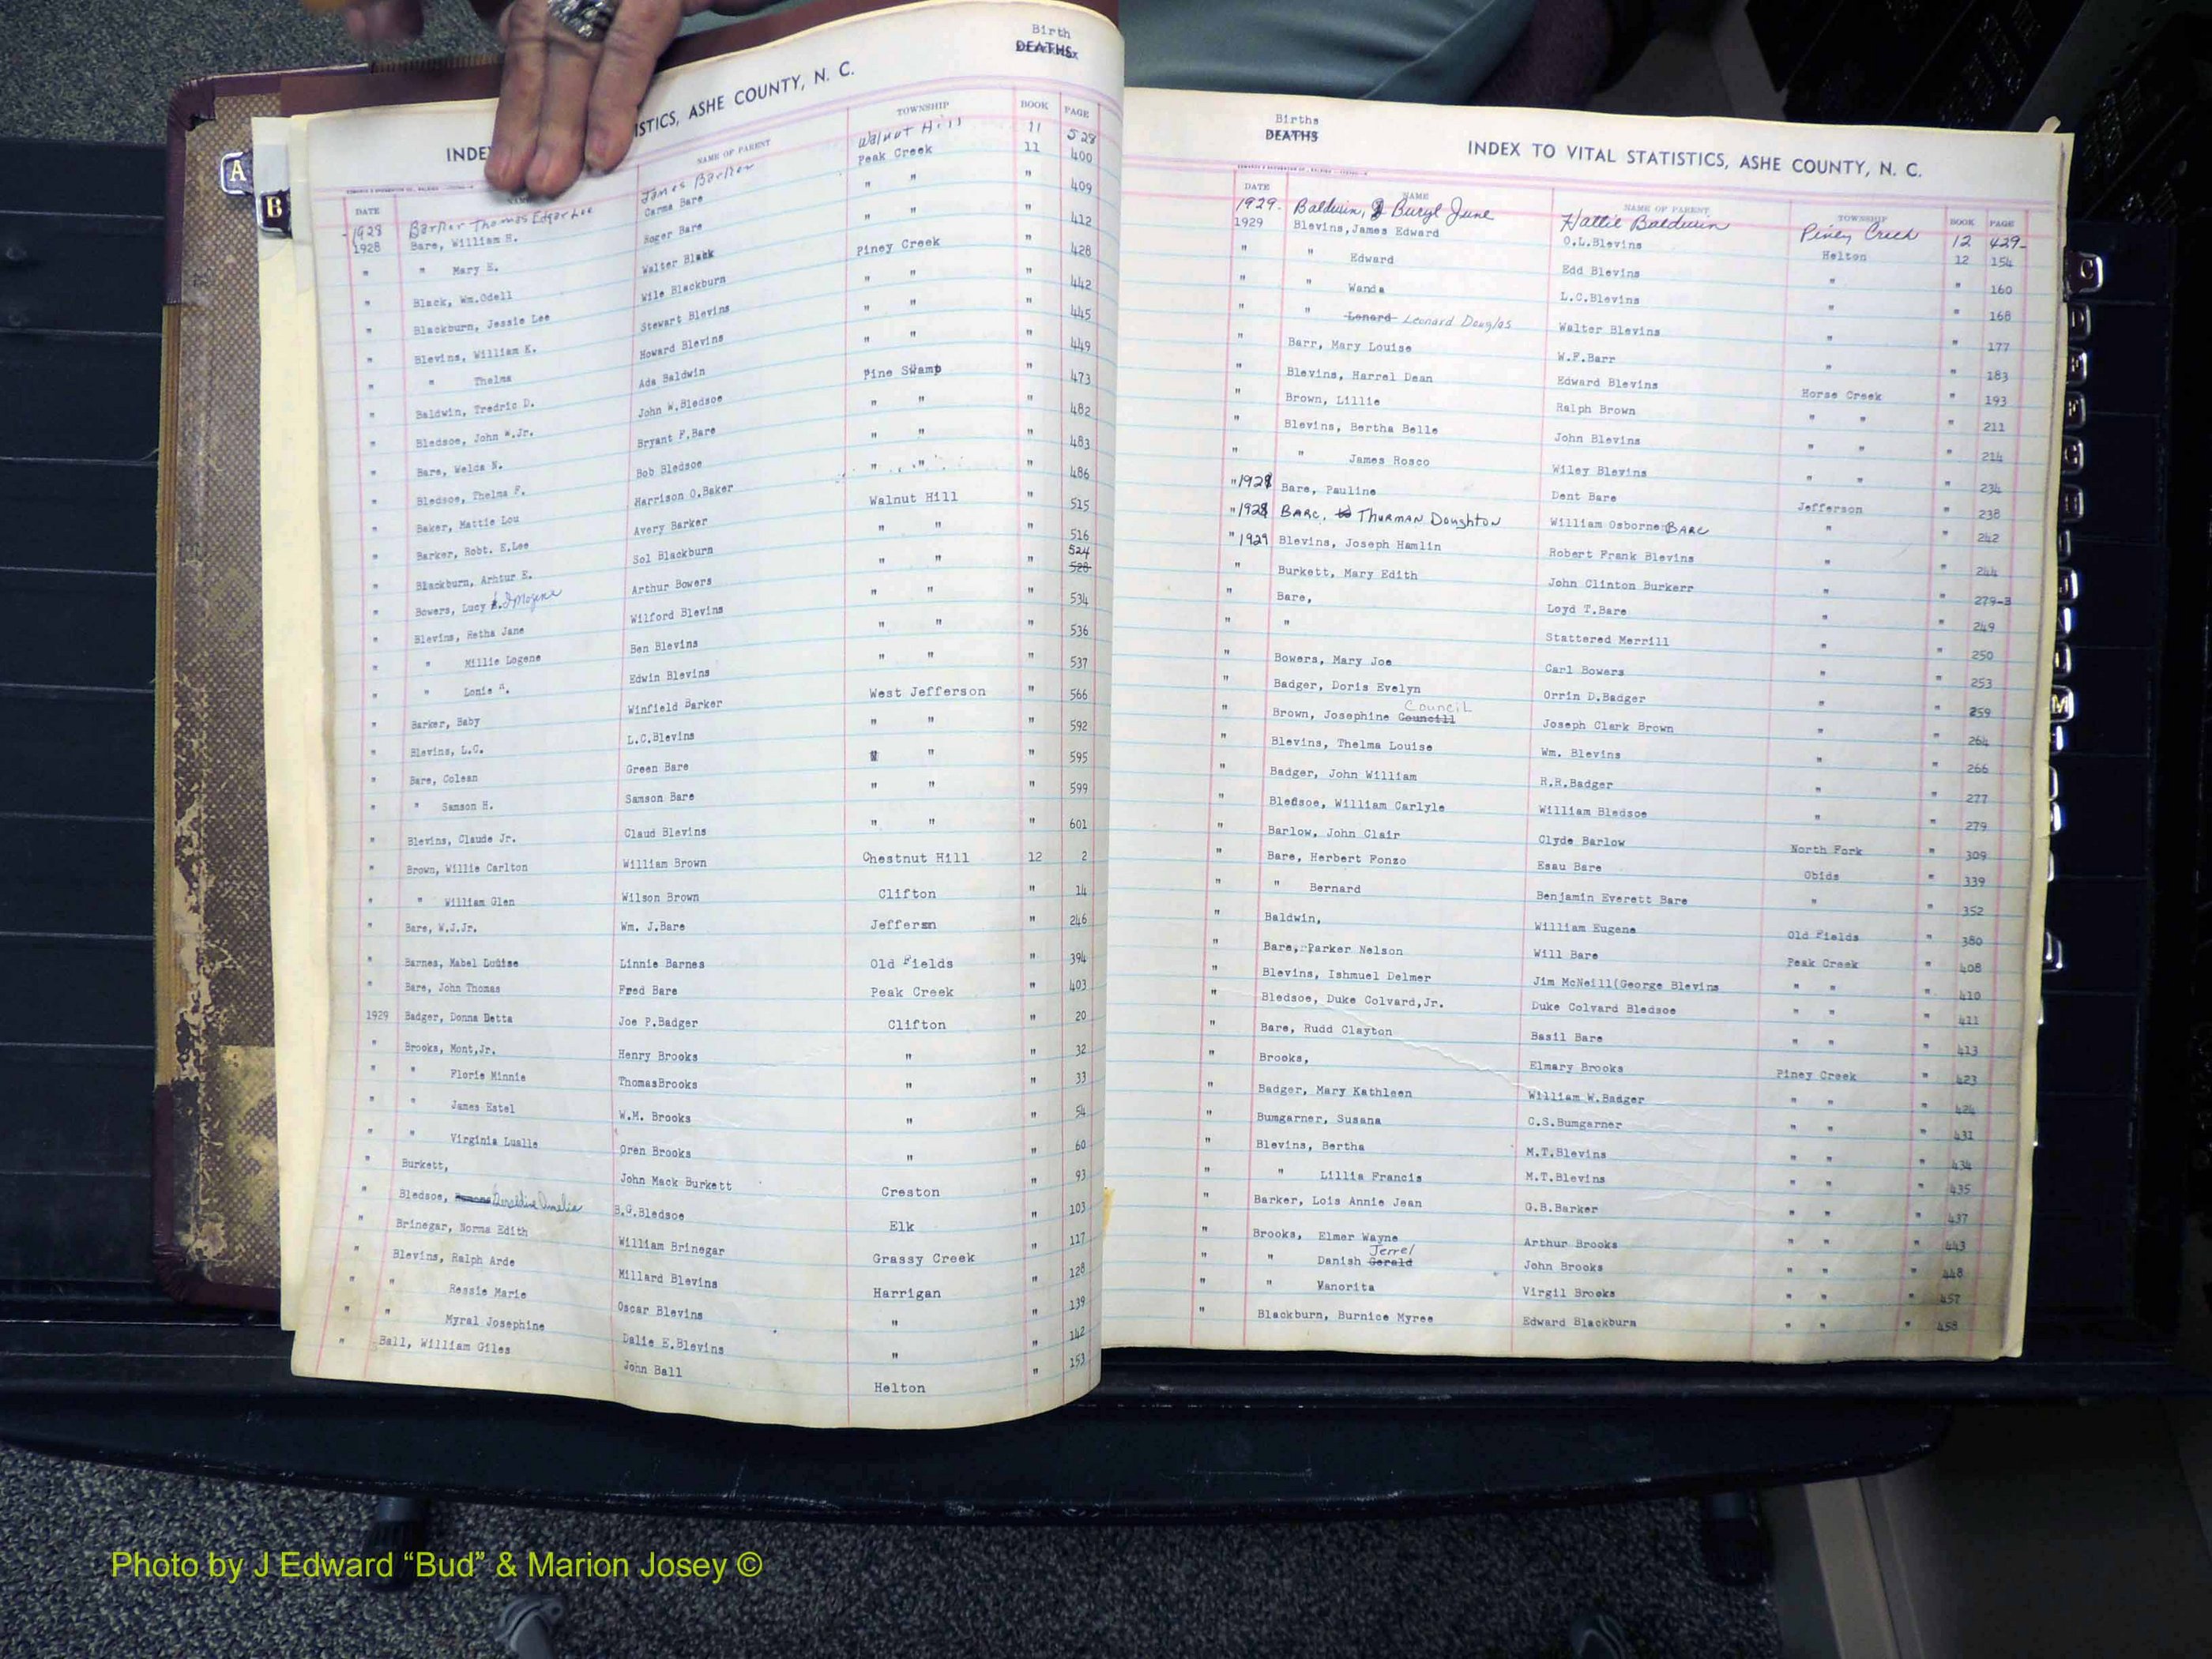 Birth
DEATHS
INDE
ISTICS, ASHE COUNTY, N. C.
DATE NAME OF PARENT TOWNSHIP BOOK PAGE
1928 Barker Thomas Edgar Lee James Barker Walnut Hill 11 528
1928 Bare, William H. Carma Bare Peak Creek 11 400
" " Mary E. Roger Bare " " " 409
" Black, Wm.Odell Walter Black " " " 412
" Blackburn, Jessie Lee Wile Blackburn Piney Creek " 428
" Blevins, William K. Stewart Blevins " " " 442
" " Thelma Howard Blevins " " " 445
" Baldwin, Tredric D. Ada Baldwin " " " 449
" Bledsoe, John W.Jr. John W.Bledsoe Pine Swamp " 473
" Bare, Welda N. Bryant F.Bare " " " 482
" Bledsoe, Thelma F. Bob Bledsoe " " " 483
" Baker, Mattie Lou Harrison O.Baker " " " 486
" Barker, Robt. E.Lee Avery Barker Walnut Hill " 515
" Blackburn, Arhtur E. Sol Blackburn " " " 516
" Bowers, Lucy Imogene Arthur Bowers " " " 524 528
" Blevins, Retha Jane Wilford Blevins " " " 534
" " Millie Logene Ben Blevins " " " 536
" " Lonie H. Edwin Blevins " " " 537
" Barker, Baby Winfield Barker West Jefferson " 566
" Blevins, L.C. L.C.Blevins " " " 592
" Bare, Colean Green Bare " " 595
" " Samson H. Samson Bare " " " 599
" Blevins, Claude Jr. Claud Blevins " " " 601
" Brown, Willie Carlton William Brown Chestnut Hill 12 2
" " William Glen Wilson Brown Clifton " 14
" Bare, W.J.Jr. Wm. J.Bare Jefferson " 246
" Barnes, Mabel Louise Linnie Barnes Old Fields " 394
" Bare, John Thomas Fred Bare Peak Creek " 403
1929 Badger, Donna Detta Joe P.Badger Clifton " 20
" Brooks, Mont,Jr. Henry Brooks " " 32
" " Florie Minnie ThomasBrooks " " 33
" " James Estel W.M. Brooks " " 54
" " Virginia Lualle Oren Brooks " " 60
" Burkett, John Mack Burkett Creston " 93
" Bledsoe, Geraldine Amelia B.G.Bledsoe Elk " 103
" Brinegar, Norma Edith William Brinegar Grassy Creek " 117
" Blevins, Ralph Arde Millard Blevins Harrigan " 128
" " Ressie Marie Oscar Blevins " " 139
" " Myral Josephine Dalie E.Blevins " " 142
" Ball, William Giles John Ball Helton " 153
Births
DEATHS
INDEX TO VITAL STATISTICS, ASHE COUNTY, N. C.
DATE NAME NAME OF PARENT TOWNSHIP BOOK PAGE
1929. Baldwin, Buryl June Hattie Baldwin Piney Creek 12 429-
1929 Blevins,James Edward O.L.Blevins Helton 12 154
" " Edward Edd Blevins " " 160
" " Wanda L.C.Blevins " " 168
" " Lenard Leonard Douglas Walter Blevins " " 177
" Barr, Mary Louise W.F.Barr " " 183
" Blevins, Harrel Dean Edward Blevins Horse Creek " 193
" Brown, Lillie Ralph Brown " " " 211
" Blevins, Bertha Belle John Blevins " " " 214
" " James Rosco Wiley Blevins " " " 234
" 1928 Bare, Pauline Dent Bare Jefferson " 238
" 1928 BARE, THURMAN Doughton William Osborne BARE " " 242
" 1929 Blevins, Joseph Hamlin Robert Frank Blevins " " 244
" Burkett, Mary Edith John Clinton Burkerr " " 279-3
" Bare, Loyd T.Bare " " 249
" " Stattered Merrill " " 250
" Bowers, Mary Joe Carl Bowers " " 253
" Badger, Doris Evelyn Orrin D.Badger " " 259
" Brown, Josephine Councill Council Joseph Clark Brown " " 264
" Blevins, Thelma Louise Wm. Blevins " " 266
" Badger, John William R.R.Badger " " 277
" Bledsoe, William Carlyle William Bledsoe " " 279
" Barlow, John Clair Clyde Barlow North Fork " 309
" Bare, Herbert Fonzo Esau Bare Obids " 339
" " Bernard Benjamin Everett Bare " " 352
" Baldwin, William Eugene Old Fields " 380
" Bare, Parker Nelson Will Bare Peak Creek " 408
" Blevins, Ishmuel Delmer Jim McNeill(George Blevins " " " 410
" Bledsoe, Duke Colvard,Jr. Duke Colvard Bledsoe " " " 411
" Bare, Rudd Clayton Basil Bare " " " 413
" Brooks, Elmary Brooks Piney Creek " 423
" Badger, Mary Kathleen William W.Badger " " " 424
" Bumgarner, Susana C.S.Bumgarner " " " 431
" Blevins, Bertha M.T.Blevins " " " 434
" " Lillia Francis M.T.Blevins " " " 435
" Barker, Lois Annie Jean G.B.Barker " " " 437
" Brooks, Elmer Wayne Arthur Brooks " " " 443
" " Danish Gerald Jerrel John Brooks " " " 448
" " Vanorita Virgil Brooks " " " 457
" Blackburn, Burnice Myree Edward Blackburn " " " 458
A
B
C
D
E
F
G
H
J
M
Photo by J Edward “Bud” & Marion Josey ©